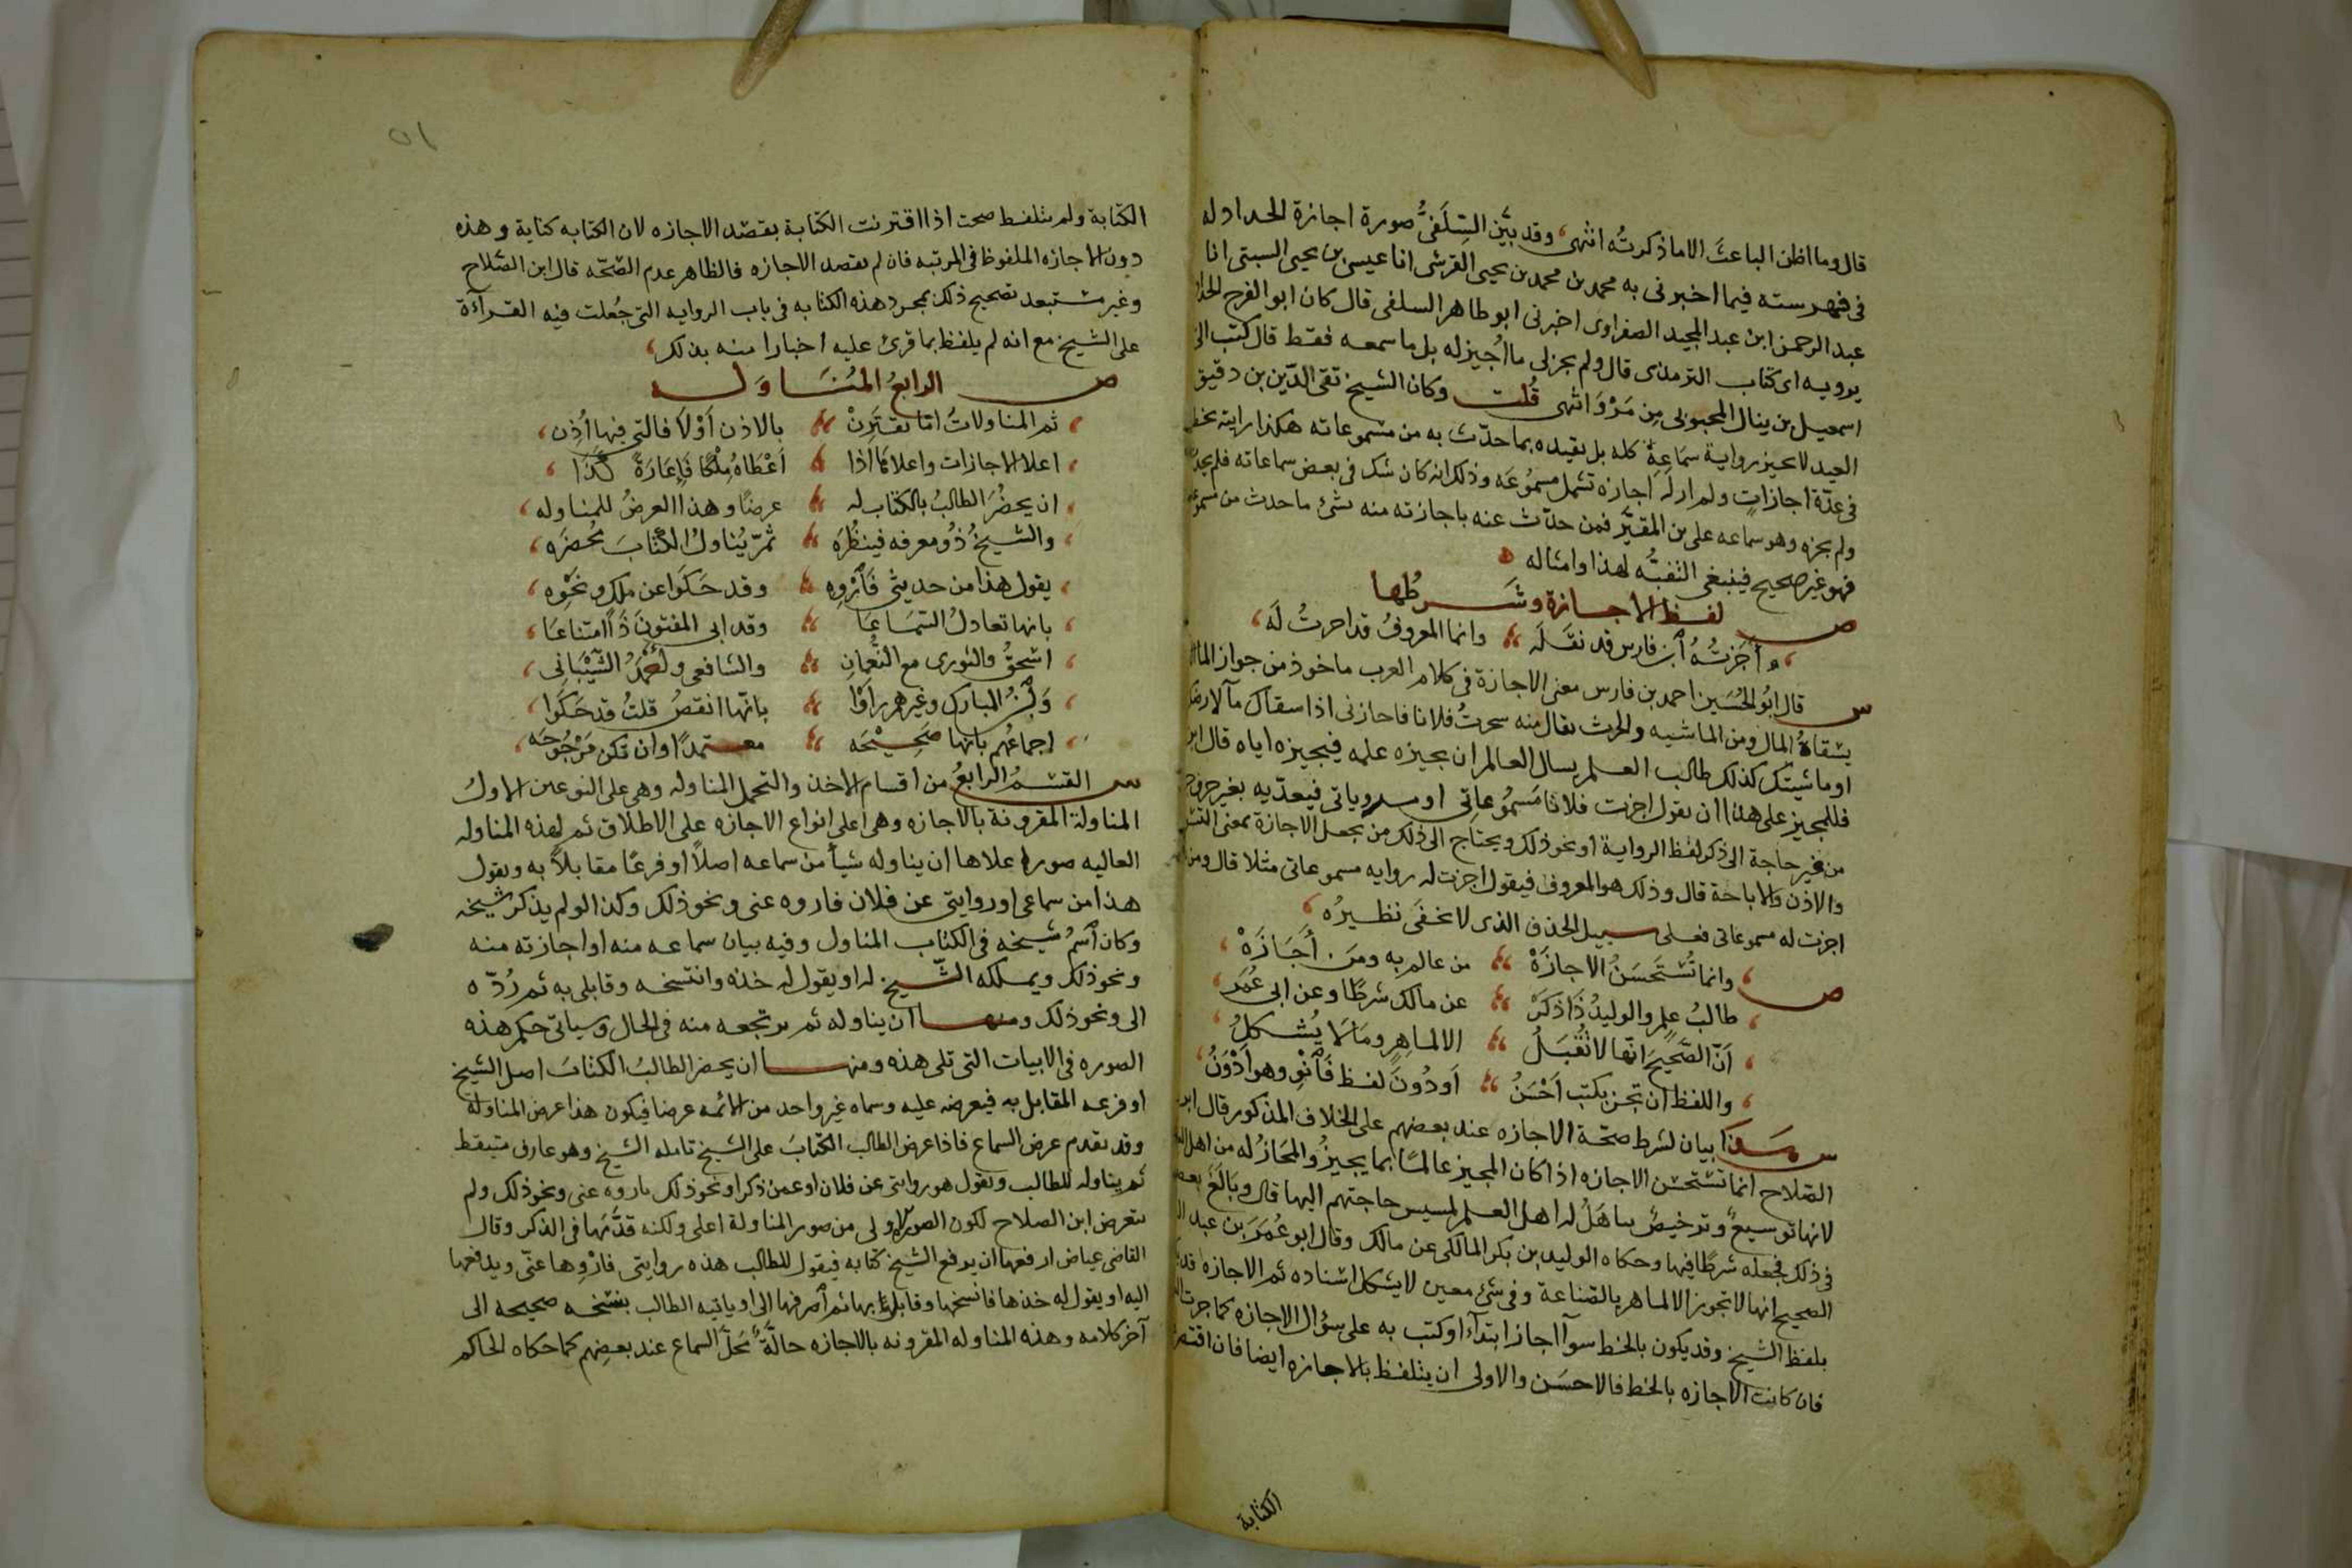 قال وما اظن الباعث الا ما ذكرته انتهى وقد بيّن السِّلَفيُّ صورة اجازة الحداد له
في فهرسته فيما اخبرني به محمد بن محمد بن يحيى القرشي انا عيسى بن يحيى السبتي انا
عبد الرحمن ابن عبد المجيد الصفراوي اخبرني ابو طاهر السلفي قال كان ابو الفرج
يرويه اي كتاب الترمذي قال ولم يجز لي ما اُجيز له بل ما سمعه فقط قال كتب الي
اسمعيل بن ينال المحبوبي مِن مَرْوَ انتهى قُلت وكان الشيخ تقي الدّين بن دقيق
العيد لا يجيز رواية سَمَاعِهِ كله بل يقيده بما حدّث به من مسموعاته هكذا رايته بخطه
في عدّة اجازاتٍ ولم ار له اجازه تشمل مسمُوعَه وذلك انه كان شك في بعض سماعاته فلم
ولم يجزه وهو سماعه على بن المقيَّر فمن حدّث عنه باجازته منه بشئ ما حدث من
فهو غير صحيح فينبغي التنبُّه لهذا وامثاله ه
ص لفظ الاجازة وشَرطُها
أَجَزتُهُ ابن فارس قد نقَلَه وانما المعروفُ قد اجزتُ لَه
س قال ابُو الحُسَين احمد بن فارس معنى الاجازة في كلام العرب ماخوذ من جواز
يسقاهُ المال من الماشيه والحرث يقال منه استجزتُ فلانا فاجازني اذا سقاك مآ
او ماشيتك كذلك طالب العلم يسال العالم ان يجيزه علمه فيجيزه اياه قال ابن
فللمجيز على هذا ان يقول اجزت فلانا مَسمُوعاتي او مروياتي فيعدّيه بغير حرف
من غير حاجة الى ذكر لفظ الرواية او نحو ذلك ويحتاج الى ذلك من يجعل الاجازة بمعنى
والاذن والاباحة قال وذلك هو المعروف فيقول اجزت له روايه مسموعاتي مثلا قال ومن
اجزت له مسموعاتي فعلى سبيل الحذف الذي لا يخفَى نظيرُه
ص وانما تُستَحسَنُ الاجازَهْ من عالم به ومَن أجَازَهْ
طالبُ علمٍ والوليدُ ذَا ذكَرْ عن مالك شرطًا وعن ابي عُمَر
أنّ الصَّحيحَ انّها لا تُقْبَلُ الا لماهِر ومَا لا يُشكلُ
واللفظ ان تجز بكتب اَحْسَنُ اَو دُونَ لفظ فَانْوِ وهو اَدْوَنُ
س هَذا بيان لشرط صحّة الاجازه عند بعضهم على الخلاف المذكور قال ابن
الصّلاح انما تستحسن الاجازه اذا كان المجيز عالمًا بما يجيزُ والمجَازُ له من اهل
لانها توسيعٌ وترخيصٌ يتاهَلُ له اهل العلم لمسيس حاجتهم اليها قال وبَالَغَ
في ذلك فجعله شرطًا فيها وحكاه الوليد بن بكر المالكي عن مالك وقال ابو عُمَرَ بن عبد
الصحيح انها لا تجوز الا لماهر بالصّناعة وفي شئ معين لا يشكل اسناده ثم الاجازه قد
بلفظ الشيخ وقد يكون بالخط سوآ اجاز ابتدآءً او كتب به على سؤال الاجازه كما جرت
فان كانت الاجازه بالخط فالاحسَن والاولى ان يتلفظ بالاجازه ايضا فان اقتصر
الكتابة
٥١
الكتابة ولم يتلفظ صحت اذا اقترنت الكتابة بقصد الاجازه لان الكتابه كناية وهذه
دون الاجازه الملفوظ في المرتبه فان لم يقصد الاجازه فالظاهر عدم الصّحّه قال ابن الصّلاح
وغير مستبعد تصحيح ذلك بمجرد هذه الكتابه في باب الروايه التي جُعلت فيه القراءة
على الشيخ مع انه لم يلفظ بما قرئ عليه اخبارا منه بذلك
ص الرابعُ المُنَاوَلة
ثم المناولاتُ امّا تقترِنْ بالاذن أَوْلا فالتي فيها اُذِن
اعلا الاجازات واعلاها اذا اَعْطَاهُ مِلْكًا فَإِعَارَةً كَذَا
ان يحضُرَ الطالبُ بالكتاب له عرضًا وهذا العرضُ للمناوله
والشيخُ ذُو معرفه فينظُرَه ثمّ يُناولَ الكتابَ مُحضِرَه
يقول هذا من حديثي فَارْوِه وقد حَكَوا عن ملك ونحْوِه
بانها تعادلُ السَّمَاعَا وقد ابى المفتونَ ذَا امتناعَا
اسحقُ والثوري مع النُّعمانِ والشافعي واَحْمَدُ الشَّيْبَاني
وَابْنُ المبارك وغيرهم رأَوْا بانّها انقصُ قلتُ قد حَكَوا
اجماعُهم بانها صَحِيْحَه معتمدًا وان تكن مَرْجُوحَه
س القسمُ الرابعُ من اقسام الاخذ والتحمل المناوله وهي على النوعين الاولُ
المناولة المقرونة بالاجازه وهي اعلى انواع الاجازه على الاطلاق ثم لهذه المناوله
العاليه صور اعلاها ان يناوله شيأ من سماعه اصلاً او فرعًا مقابلاً به ويقول
هذا من سماعي او روايتي عن فلان فاروه عني ونحو ذلك وكذا لو لم يذكر شيخه
وكان اسمُ شيخه في الكتاب المناول وفيه بيان سماعه منه او اجازته منه
ونحو ذلك ويملكه الشّيخ له او يقول له خذه وانتسخه وقابل به ثم رُدّه
الى ونحو ذلك ومنها ان يناوله ثم يرتجعه منه في الحال وسياتي حكم هذه
الصوره في الابيات التي تلي هذه ومنها ان يحضر الطالبُ الكتابَ اصل الشيخ
او فرعه المقابل به فيعرضه عليه وسماه غير واحد من الائمه عرضا فيكون هذا عرض المناولة
وقد تقدم عرض السماع فاذا عرض الطالب الكتابَ على الشيخ تامله الشيخ وهو عارف متيقظ
ثم يناوله للطالب ويقول هو روايتي عن فلان او عمن ذكر او نحو ذلك فاروه عني ونحو ذلك ولم
يتعرض ابن الصلاح لكون الصوره الاولى من صور المناولة اعلى ولكنه قدَّمَها في الذكر وقال
القاضي عياض ارفعها ان يدفع الشيخ كتابه فيقول للطالب هذه روايتي فارْوِها عنّي ويدفعها
اليه او يقول له خذها فانسخها وقابل بها ثم اصرفها الى او ياتيه الطالب بنسخه صحيحه الى
آخر كلامه وهذه المناوله المقرونه بالاجازه حالّةٌ مَحلَّ السماع عند بعضِهم كما حكاه الحاكم